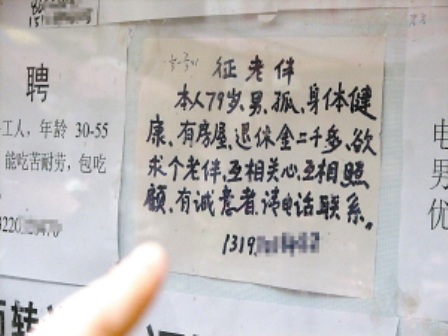 聘
工人,年龄 30-55
能吃苦耐劳,包吃
征老伴
本人79岁、男、孤、身体健
康、有房屋、退保金二千多、欲
求个老伴、互相关心、互相照
顾、有诚意者、请电话联系。
1319
电
男
优